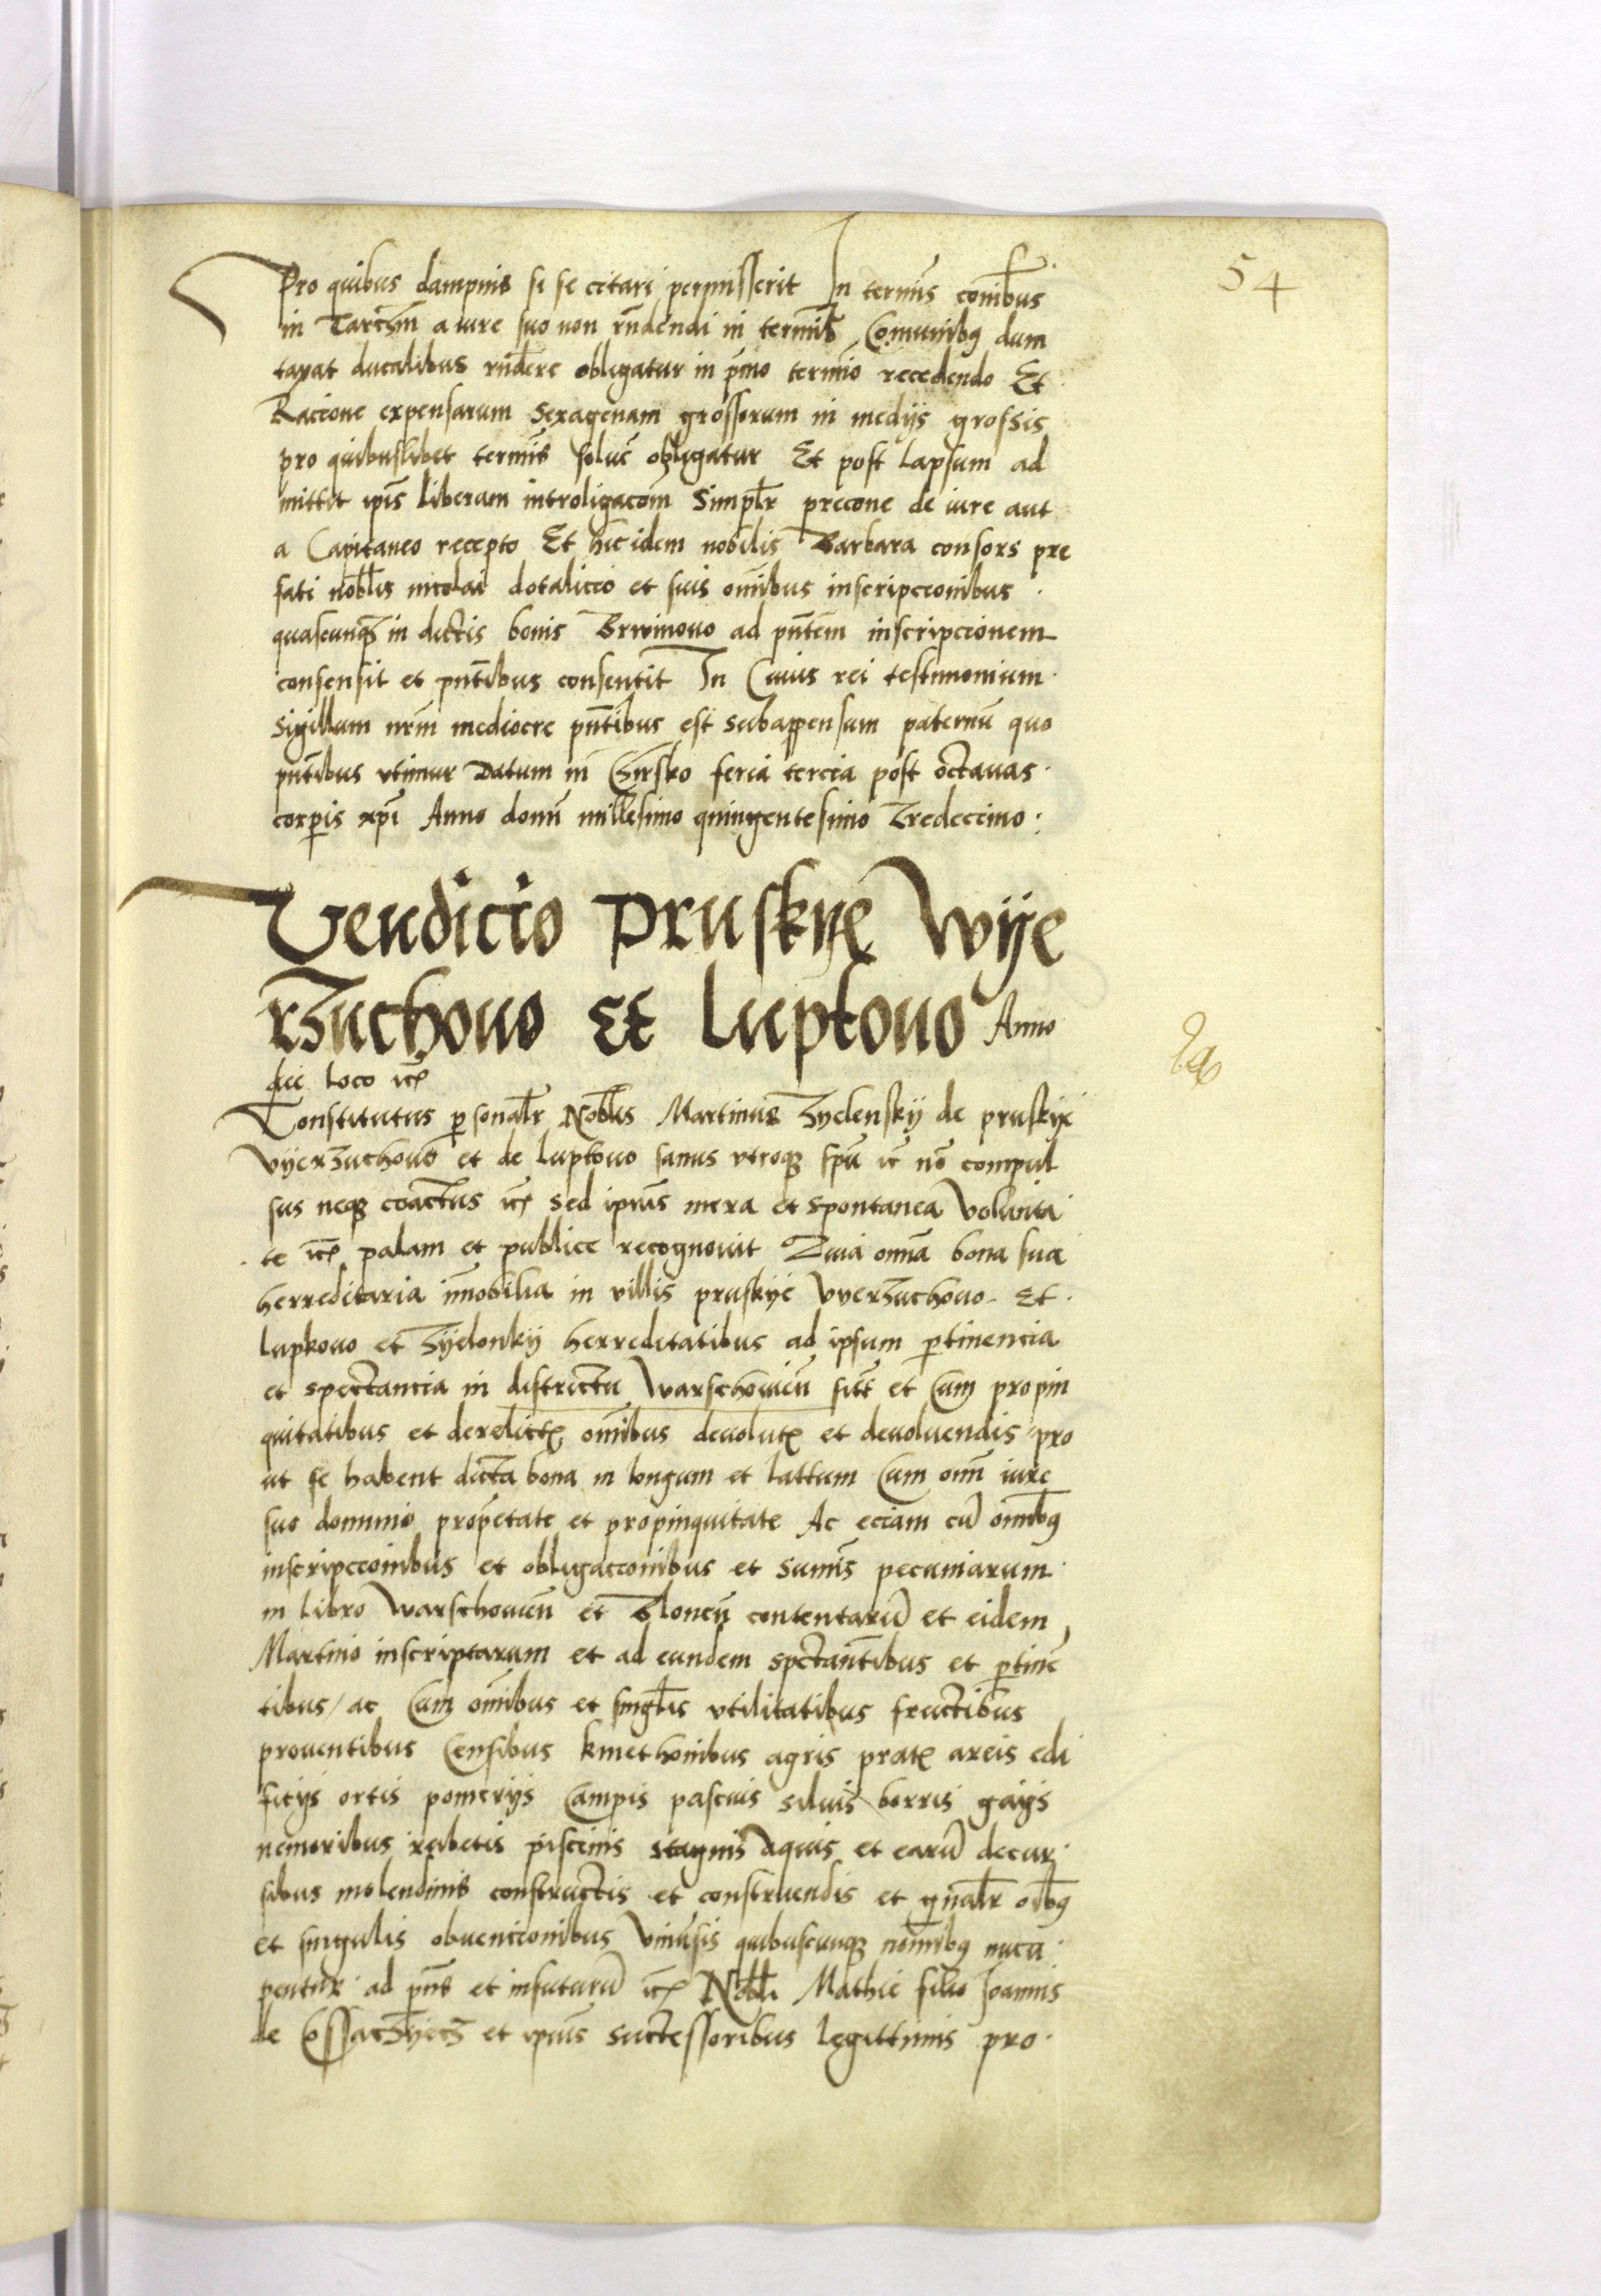 54
Pro quibus dampnis si se citari permisserit In termis comibus
in Tarczin a iure suo non rndendi in termis Comunibq dum
taxat ducalibus rndere obligatur in pmo termio recedendo Et
Racione expensarum sexagenam grossorum in medijs grossis
pro quibuslibet termis solue obligatur Et post lapsum ad
mittit ipis liberam introligacom Simplr precone de iure aut
a Capitaneo recepto Et hic idem nobilis Barbara consors pre
fati noblis nicolai dotalicio et suis omibus inscripccionibus
quascunq in dictis bonis Brwinouo ad pntem inscripcionem
consensit et pntibus consentit In Cuius rei testimonium
Sigillum nrm mediocre pntibus est subappensum paternu quo
pntibus vtimur Datum in Czirsko feria tercia post octauas
corpis xpi Anno domi millesimo quingentesimo Tredecimo
Vendicio Pruskye Wije
rzuchouo Et Luptouo Anno
die loco etc
Constitutus psonalr Noblis Martinus Zyelenskij de pruskije
vijerzuchouo et de luptouo sanus vtroq spu etc no compul
sus neq coactus etc sed ipius mera et spontanea volunta
te etc palam et publice recognouit Quia omia bona sua
herreditaria imobilia in villis pruskije vyerzuchouo Et
lupkouo et Zijelonkij herreditatibus ad ipsum ptinencia
et spectancia in districtu Warschouien sitt et Cum propin
quitatibus et derelict omibus deuolut et deuoluendis pro
ut se habent dicta bona in longum et lattum Cum omi iure
suo dominio propetate et propinquitate Ac eciam cu omibq
inscripccionibus et obligaccionibus et Sumis pecuniarum
in libro Warschouien et Blonen contentaru et eidem
Martino inscriptarum et ad eundem spectantibus et ptine
tibus / ac Cum omibus et singlis vtilitatibus fructibus
prouentibus Censibus kmethonibus agris prat areis edi
ficijs ortis pomerijs Campis pascuis siluis borris gaijs
nemoribus rubetis piscinis stagnis aquis et earu decur
sibus molendinis constructis et construendis et gnalr oibq
et singulis obuencionibus vniusis quibuscunq nomibq nucu
pentur ad pns et infuturu etc Nobli Mathie filio Joannis
de Ossaczyecz et ipius successoribus legittimis pro